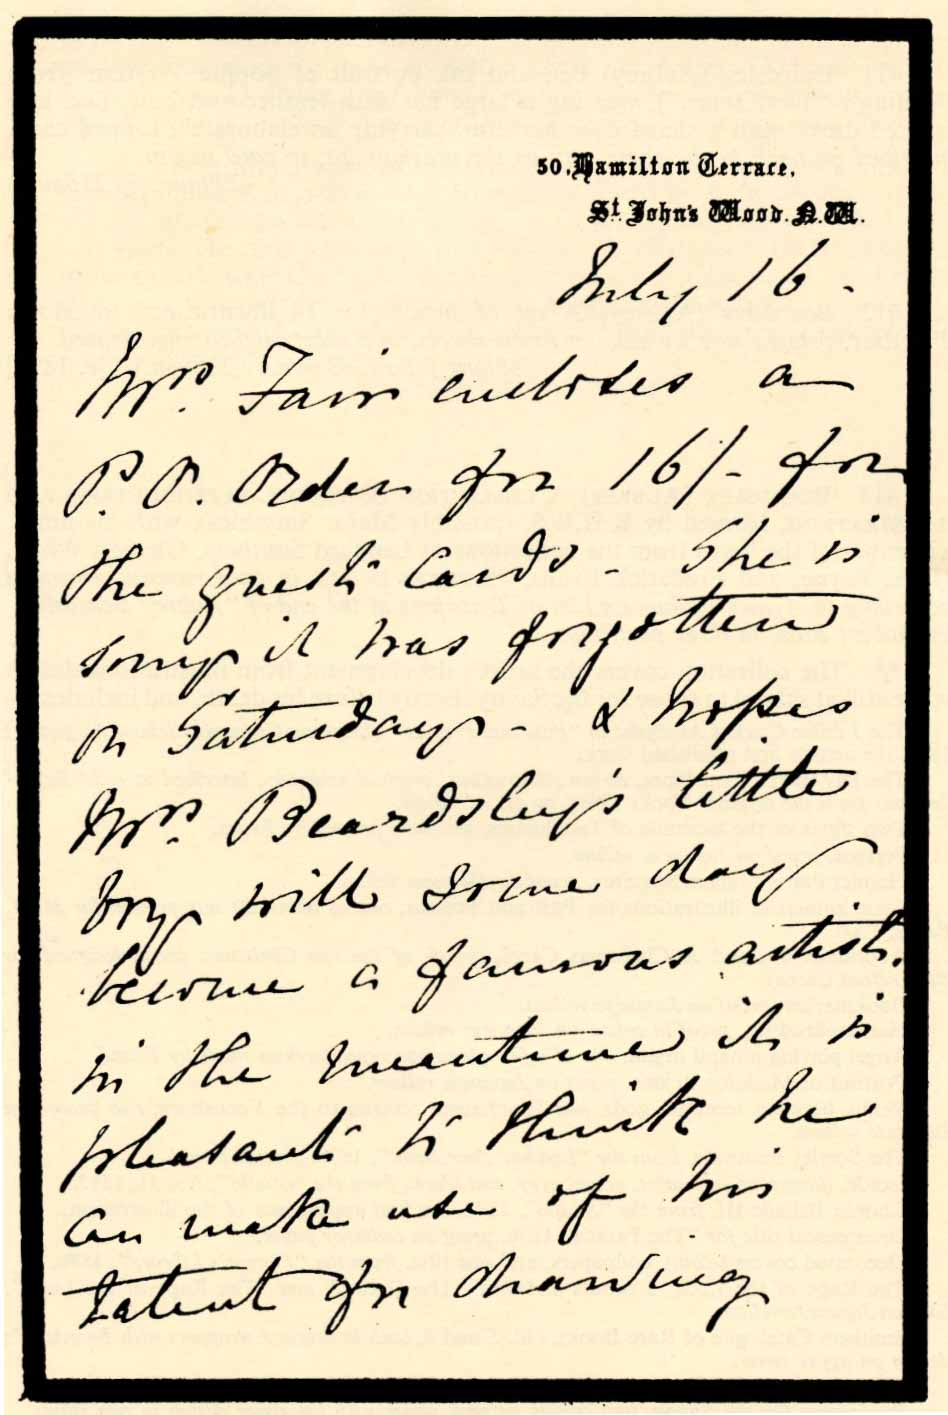 50, Hamilton Terrace,
St. John's Wood. N.W.
July 16.
Mrs. Fair encloses a
P.O. Order for 16/- for
the guest cards - She is
sorry it was forgotten
on Saturday - & hopes
Mrs. Beardsley's little
boy will some day
become a famous artist.
in the meantime it is
pleasant to think he
can make use of his
talent for drawing